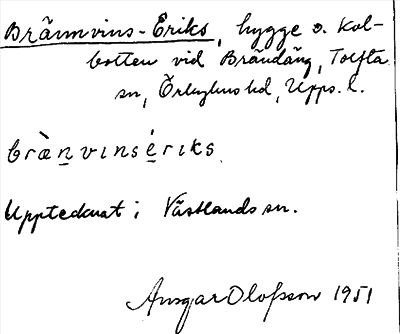 Brännvins-Eriks, hygge o. Kol-
botten vid Brändäng, Tolfta
sn, Örbyhus hd, Upps. l.
brὰn̲vinsé̲riks.
Upptecknat i Västlands sn.
Ansgar Olofsson 1951